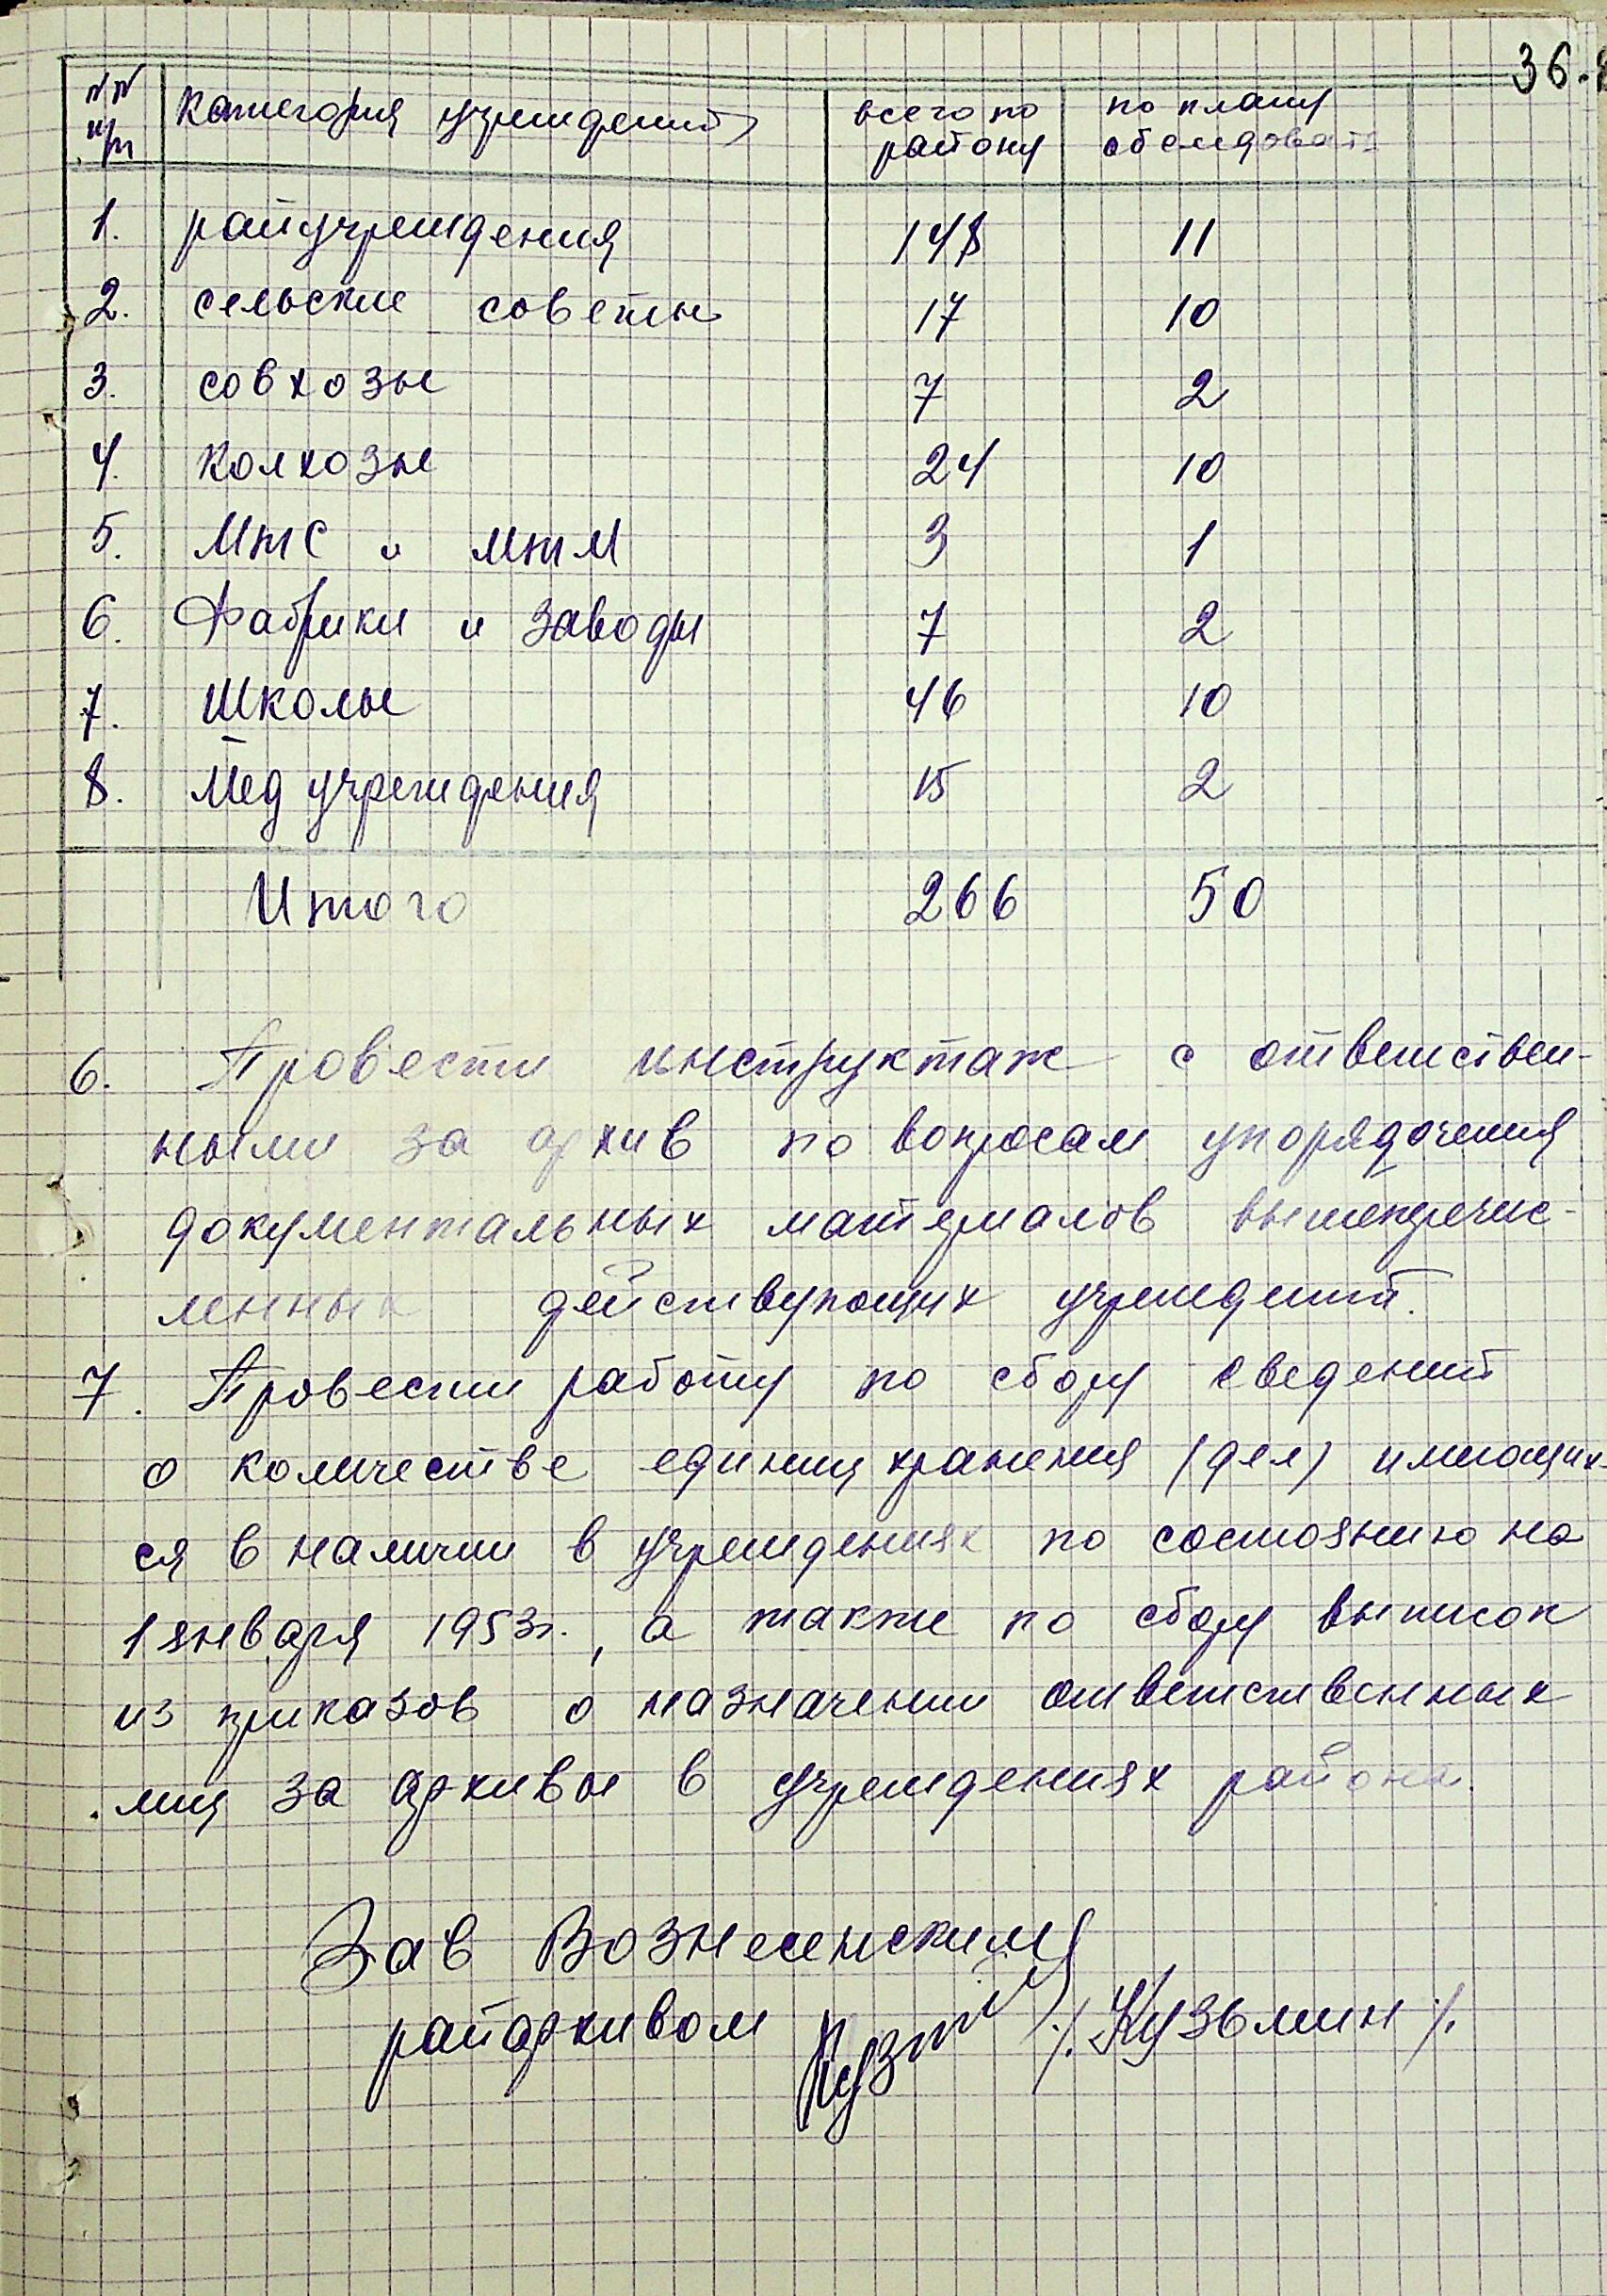 36.
№№ п/п Категория учреждений всего по району по плану обследовать
1. райучреждения 148 11
2. сельские советы 17 10
3. совхозы 7 2
4. колхозы 24 10
5. МТС и МТМ 3 1
6. Фабрики и заводы 7 2
7. Школы 46 10
8. Мед учреждения 15 2
Итого 266 50
6. Провести инструктаж с ответствен-
ными за архив по вопросам упорядочения
документальных материалов вышеперечис-
ленных действующих учреждений.
7. Провести работу по сбору сведений
о количестве единиц хранения (дел) имеющих-
ся в наличии в учреждениях по состоянию на
1 января 1953г., а также по сбору выписок
из приказов о назначении ответственных
лиц за архивы в учреждениях района.
Зав Вознесенским
райархивом Кузьмин /. Кузьмин /.